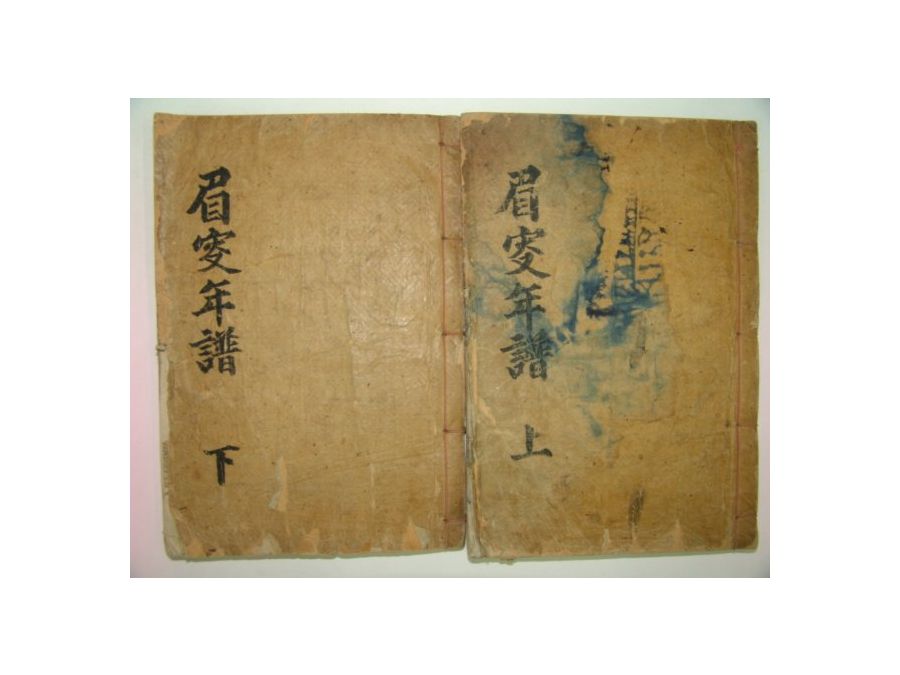 眉叜年譜
上
眉叜年譜
下